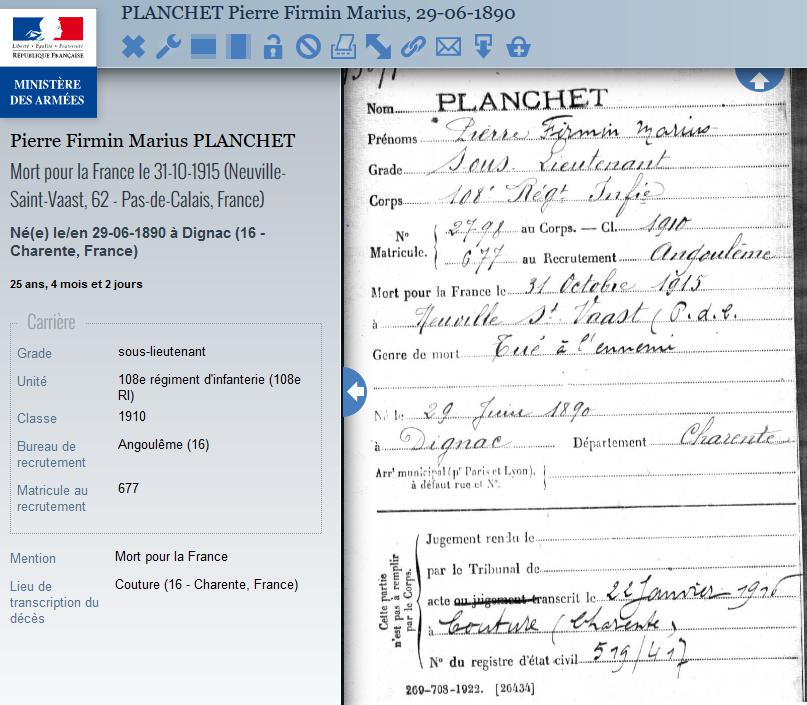 PLANCHET Pierre Firmin Marius, 29-06-1890
Liberté • Égalité • Fraternité
RÉPUBLIQUE FRANÇAISE
MINISTÈRE
DES ARMÉES
Pierre Firmin Marius PLANCHET
Mort pour la France le 31-10-1915 (Neuville-
Saint-Vaast, 62 - Pas-de-Calais, France)
Né(e) le/en 29-06-1890 à Dignac (16 -
Charente, France)
25 ans, 4 mois et 2 jours
Carrière
Grade sous-lieutenant
Unité 108e régiment d'infanterie (108e
RI)
Classe 1910
Bureau de
recrutement Angoulême (16)
Matricule au
recrutement 677
Mention Mort pour la France
Lieu de
transcription du
décès Couture (16 - Charente, France)
Nom PLANCHET
Prénoms Pierre Firmin Marius
Grade Sous. Lieutenant
Corps 108e Régt Infie
No Matricule. { 2798 au Corps. — Cl. 1910
677 au Recrutement Angoulême
Mort pour la France le 31 Octobre 1915
à Neuville St Vaast (P.d.C.
Genre de mort Tué à l'ennemi
Né le 29 Juin 1890
à Dignac Département Charente
Arrt municipal (pr Paris et Lyon),
à défaut rue et No.
Cette partie
n'est pas à remplir
par le Corps.
Jugement rendu le
par le Tribunal de
acte ou jugement transcrit le 22 Janvier 1916
à Couture (Charente)
No du registre d'état civil 519/417
269-708-1922. [26434]